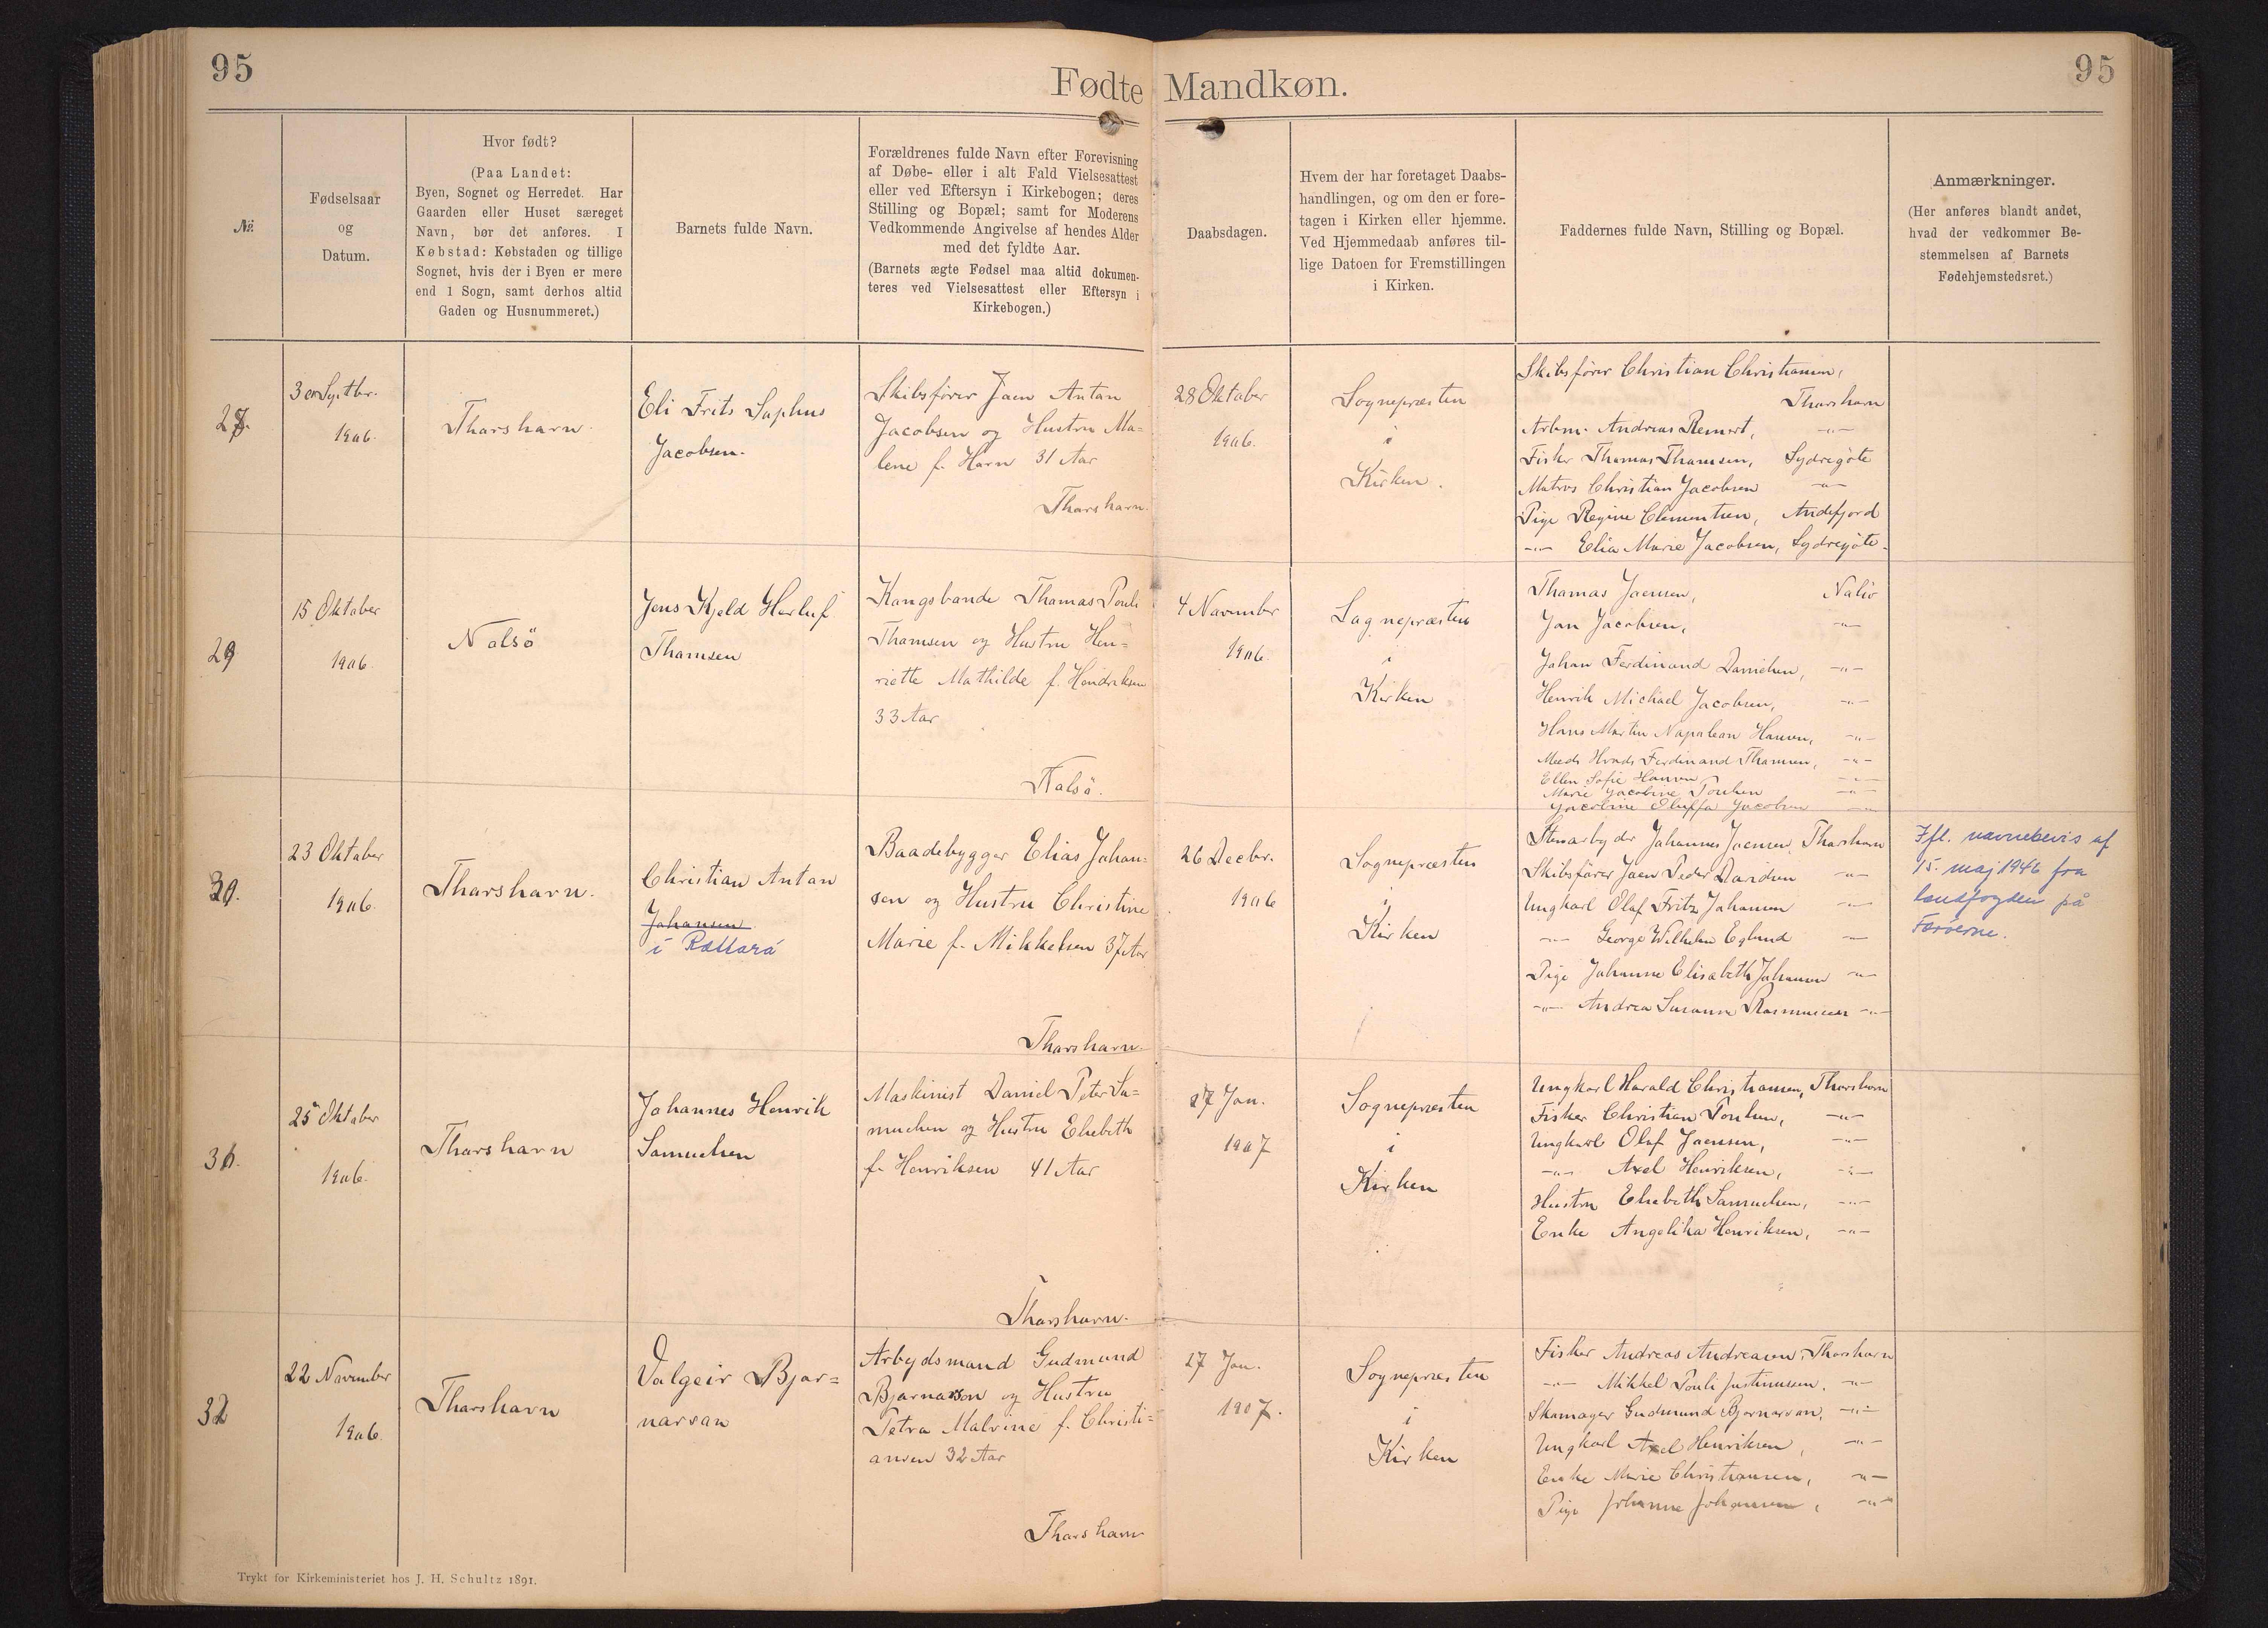 95
Fødte Mandkøn.
95
No.
Fødselsaar
og
Datum.
Hvor født?
(Paa Landet:
Byen, Sognet og Herredet. Har
Gaarden eller Huset særeget
Navn, bør det anføres. I
Købstad: Købstaden og tillige
Sognet, hvis der i Byen er mere
end 1 Sogn, samt derhos altid
Gaden og Husnummeret.)
Barnets fulde Navn.
Forældrenes fulde Navn efter Forevisning
af Døbe- eller i alt Fald Vielsesattest
eller ved Eftersyn i Kirkebogen; deres
Stilling og Bopæl; samt for Moderens
Vedkommende Angivelse af hendes Alder
med det fyldte Aar.
(Barnets ægte Fødsel maa altid dokumen-
teres ved Vielsesattest eller Eftersyn i
Kirkebogen.)
Daabsdagen.
Hvem der har foretaget Daabs-
handlingen, og om den er fore-
tagen i Kirken eller hjemme.
Ved Hjemmedaab anføres til-
lige Datoen for Fremstillingen
i Kirken.
Faddernes fulde Navn, Stilling og Bopæl.
Anmærkninger.
(Her anføres blandt andet,
hvad der vedkommer Be-
stemmelsen af Barnets
Fødehjemstedsret.)
Septbr.
1906.
Thorshavn.
Eli Frits Sophus
Jacobsen.
Skibsfører Joen Anton
Jacobsen og Hustru Ma=
lene f. Horn 31 Aar
Thorshavn.
28 Oktober
1906.
Sognepræsten
i
Kirken.
Skibsfører Christian Christiansen,
Thorshavn
Arbm. Andreas Reinert, -"-
Fisker Thomas Thomsen, Sydregøte
Matros Christian Jacobsen -"-
Pige Regine Clementsen, Andefjord
-"- Elia Marie Jacobsen, Sydregøte.
29
15 Oktober
1906.
Nolsö
Jens Kjeld Herluf
Thomsen
Kongsbonde Thomas Pouli
Thomsen og Hustru Hen=
riette Mathilde f. Hendriksen
33 Aar
Nolsö.
4 November
1906.
Sognepræsten
i
Kirken
Thomas Joensen, Nolsö
Jon Jacobsen, -"-
Johan Ferdinand Danielsen, -"-
Henrik Michael Jacobsen, -"-
Hans Martin Napoleon Hansen, -"-
Ferdinand Thomsen, -"-
Ellen Sofie Hansen -"-
Marie Jacobine Poulsen -"-
Jacobine Oluffa Jacobsen -"-
30.
23 Oktober
1906.
Thorshavn.
Christian Anton
Johansen
í Rættará
Baadebygger Elias Johan=
sen og Hustru Christine
Marie f. Mikkelsen 37 Aar
Thorshavn.
26 Decbr.
1906
Sognepræsten
i
Kirken
Johannes Joensen, Thorshavn
Skibsfører Joen Peder Davidsen -"-
Ungkarl Olaf Fritz Johansen -"-
-"- George Wilhelm Eglund -"-
Pige Johanne Elisabeth Johansen -"-
-"- Andrea Susanne Rasmussen -"-
Ifl. navnebevis af
15. maj 1946 fra
landfogden på
Færøerne.
31.
25 Oktober
1906.
Thorshavn
Johannes Henrik
Samuelsen
Maskinist Daniel Peter Sa=
muelsen og Hustru Elsebeth
f. Henriksen 41 Aar
Thorshavn.
27 Jan.
1907
Sognepræsten
i
Kirken
Ungkarl Harald Christiansen, Thorshavn
Fisker Christian Poulsen, -"-
Ungkarl Olaf Joensen, -"-
-"- Axel Henriksen, -"-
Hustru Elsebeth Samuelsen, -"-
Enke Angelika Henriksen, -"-
32
22 November
1906.
Thorshavn
Valgeir Bjar=
narson
Arbejdsmand Gudmund
Bjarnarson og Hustru
Petra Malvine f. Christi=
ansen 32 Aar
Thorshavn
27 Jan.
1907.
Sognepræsten
i
Kirken
Fisker Andreas Andreasen, Thorshavn
-"- Mikkel Pouli Justinussen, -"-
Skomager Gudmund Bjarnarson, -"-
Ungkarl Axel Henriksen, -"-
Enke Marie Christiansen, -"-
Pige Johanne Johannesen, -"-
Trykt for Kirkeministeriet hos J. H. Schultz 1891.